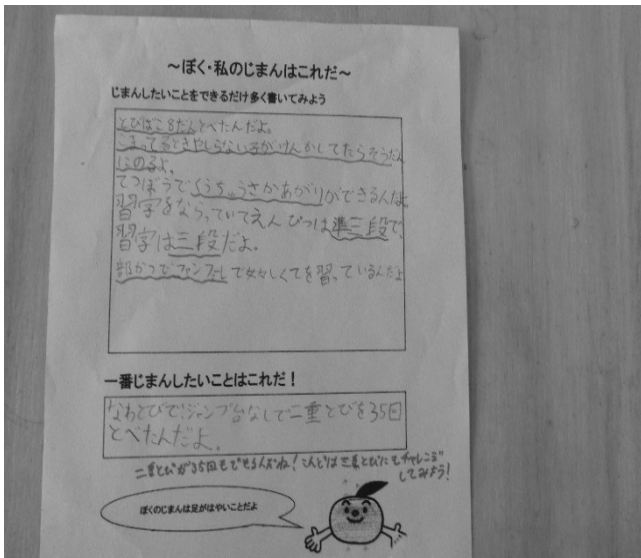 ～ぼく・私のじまんはこれだ～
じまんしたいことをできるだけ多く書いてみよう
とびばこ8だんとべたんだよ。
こまってるときやしらない子がけんかしてたらそうだん
にのるよ。
てつぼうでくうちゅうさかあがりができるんだよ。
習字をならっていてえんぴつは準三段で、
習字は三段だよ。
部かつでファンファーレで女々しくてを習っているんだよ
一番じまんしたいことはこれだ！
なわとびで!ジャンプ台なしで二重とびを35回
とべたんだよ。
二重とびが35回もできるんだね！こんどは三重とびにもチャレンジ
してみよう！
ぼくのじまんは足がはやいことだよ